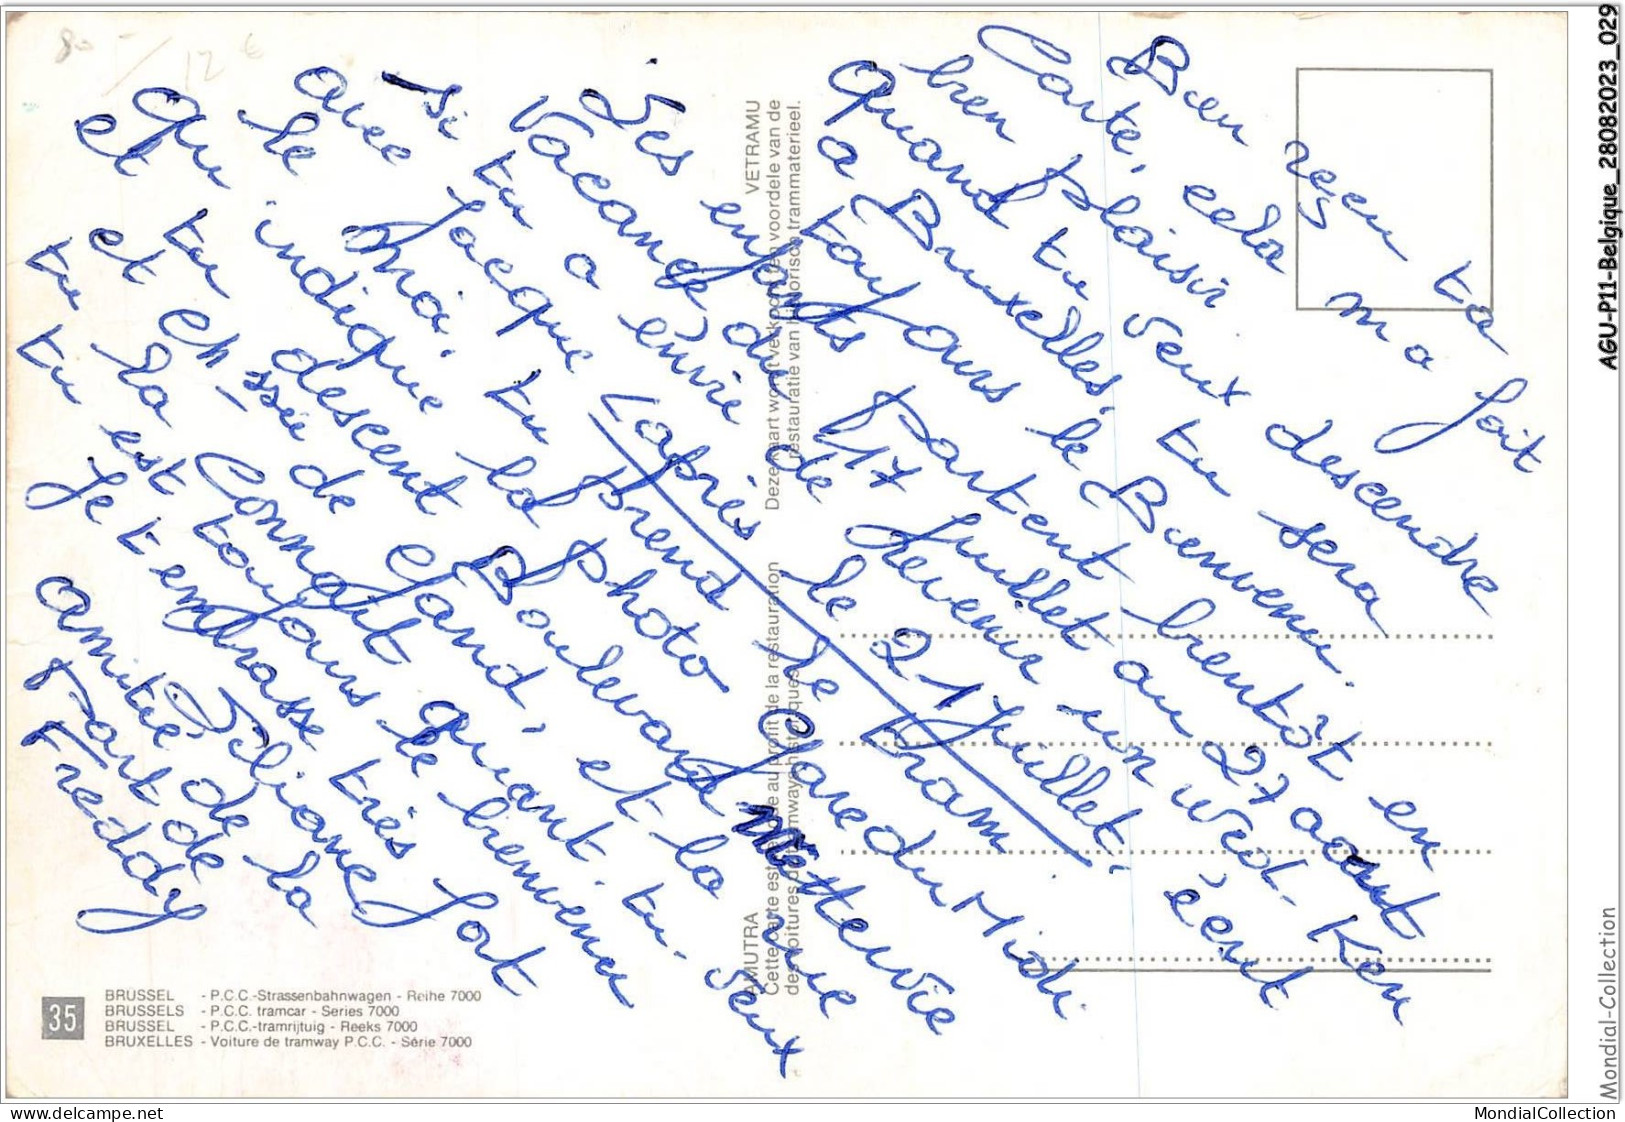 Bien reçu ta
Carte, cela m a fait
bien plaisir
Quand tu veux descendre
a Bruxelles, tu sera
toujours le Bienvenu.
Les enfants partent bientôt en
Vacance du 17 Juillet au 27 aout
Si tu a envie de revenir un Wed. Ken
après le 21 Juillet, écrit
avec Jacque
le moi, tu prend le tram
qui indique la photo de Gare du Midi
et tu descent Boulevard Mettewie
et Ch-ssée de Gand, et la une
tu la Connait quant. tu. veux
tu est toujours le bienvenu
Je t'embrasse très fort
Liliane
amitié de la
part de
Freddy
80 - / 12 €
35
BRÜSSEL - P.C.C.-Strassenbahnwagen - Reihe 7000
BRUSSELS - P.C.C. tramcar - Series 7000
BRUSSEL - P.C.C.-tramrijtuig - Reeks 7000
BRUXELLES - Voiture de tramway P.C.C. - Série 7000
AMUTRA
Cette carte est vendue au profit de la restauration
des voitures de tramways historiques
VETRAMU
Deze kaart wordt verkocht ten voordele van de
restauratie van historisch trammaterieel.
AGU-P11-Belgique_28082023_029
Mondial-Collection
www.delcampe.net
MondialCollection